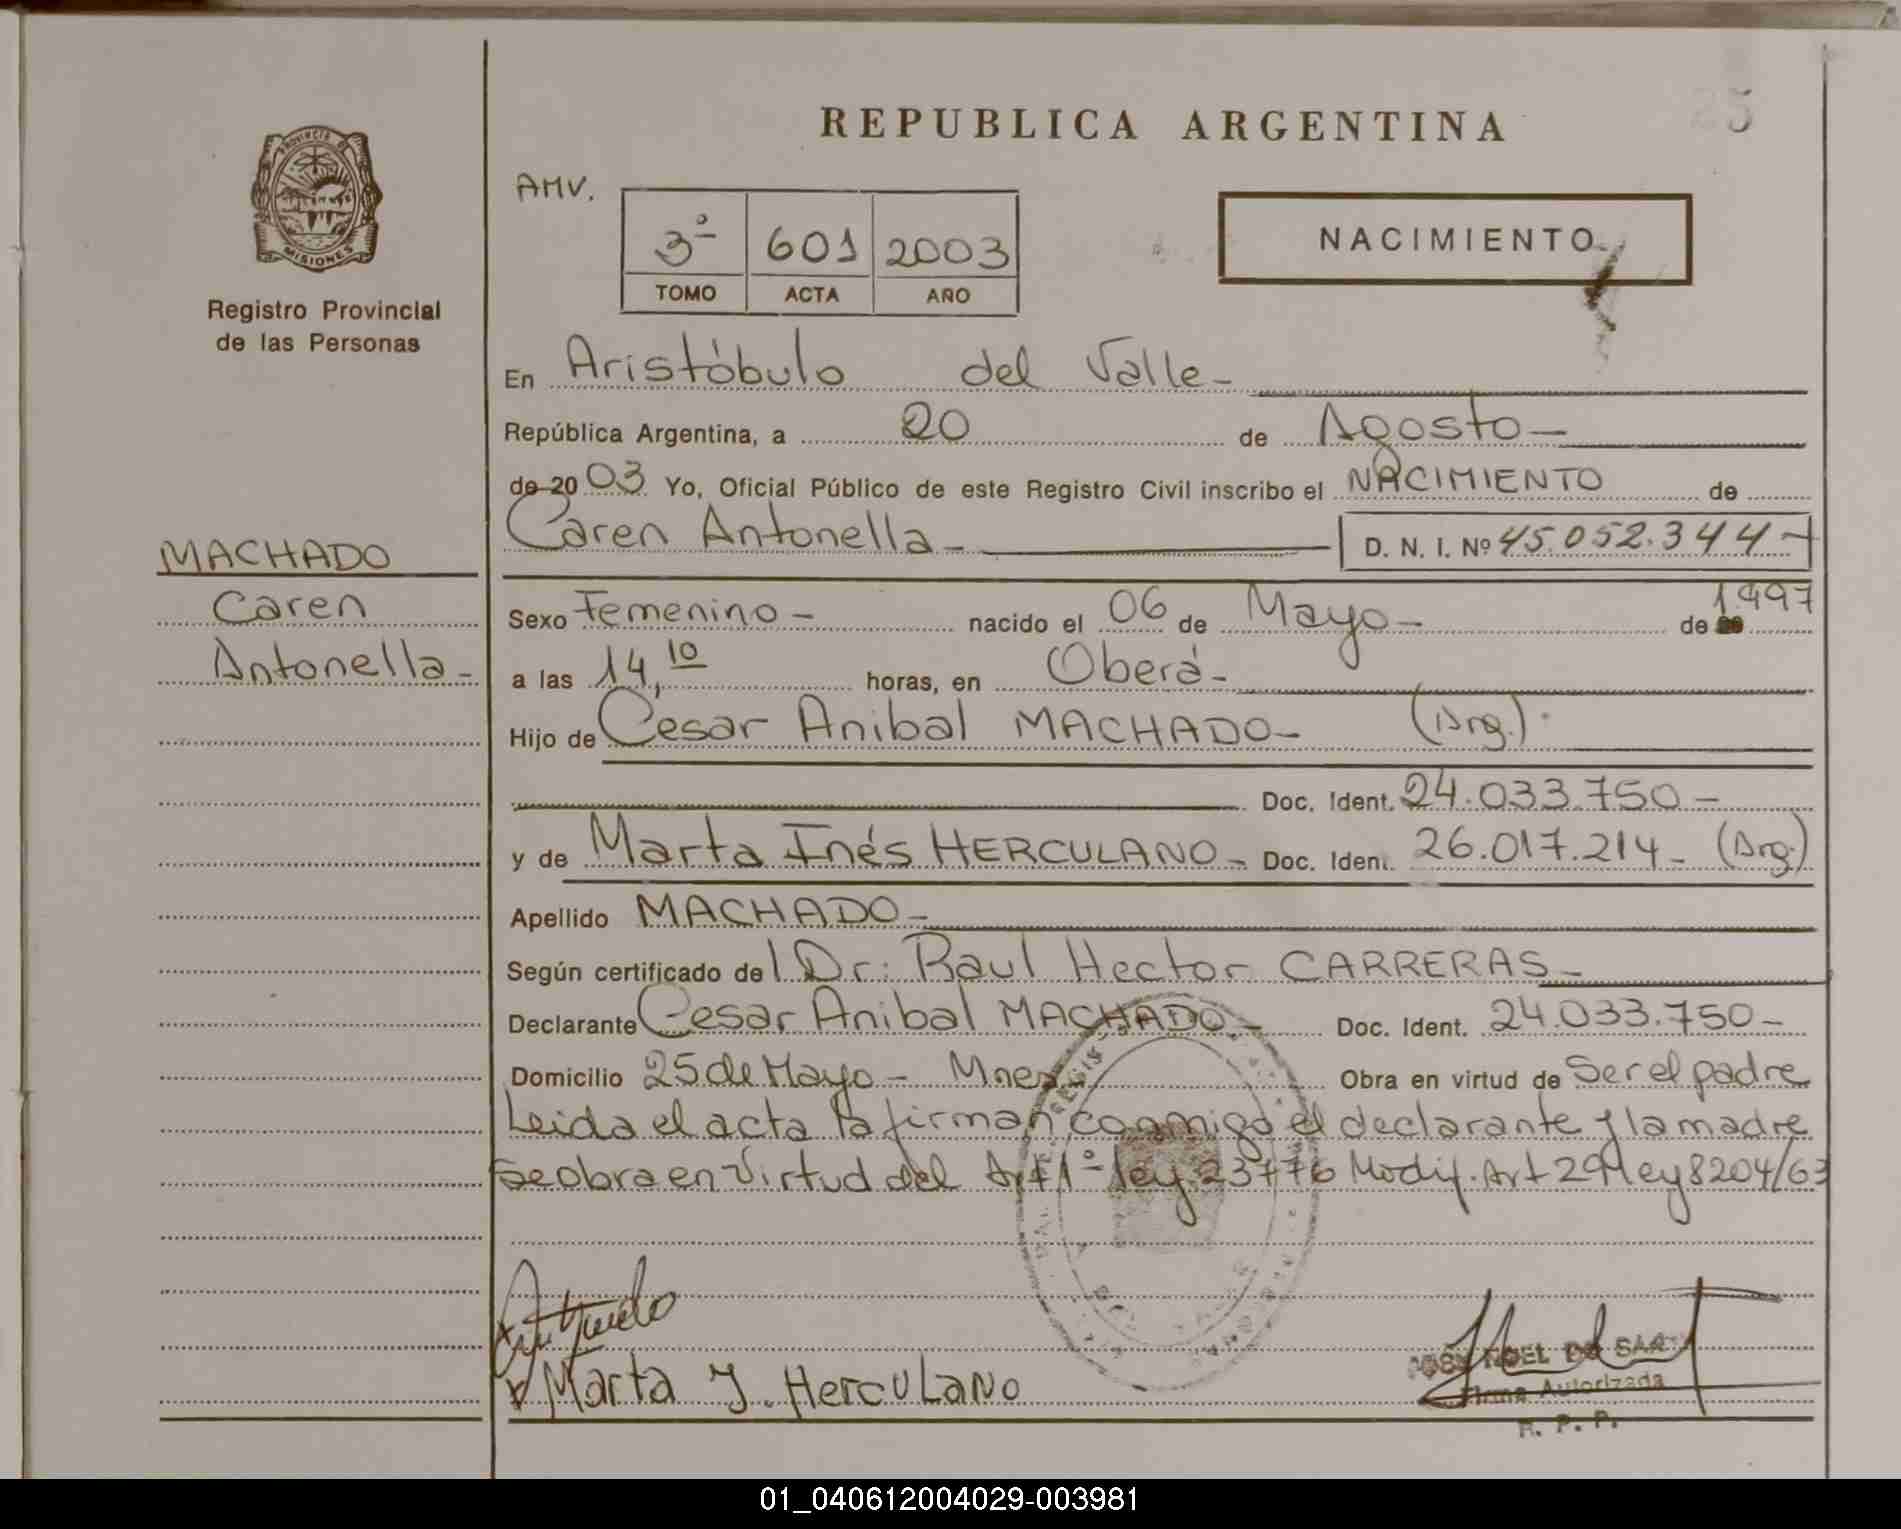 REPUBLICA ARGENTINA
25
PROVINCIA DE
MISIONES
Registro Provincial
de las Personas
AMV.
3º 601 2003
TOMO ACTA AÑO
NACIMIENTO
En Aristóbulo del Valle-
República Argentina, a 20 de Agosto-
de 20 03 Yo, Oficial Público de este Registro Civil inscribo el NACIMIENTO de
Caren Antonella- D. N. I. Nº 45.052.344-
MACHADO
Caren
Antonella-
Sexo Femenino- nacido el 06 de Mayo- de 1.997
a las 14,10 horas, en Oberá-
Hijo de Cesar Anibal MACHADO- (Arg.)
Doc. Ident. 24.033.750-
y de Marta Inés HERCULANO- Doc. Iden. 26.017.214- (Arg.)
Apellido MACHADO-
Según certificado del Dr: Raul Hector CARRERAS-
Declarante Cesar Anibal MACHADO- Doc. Ident. 24.033.750-
Domicilio 25 de Mayo- Mnes. Obra en virtud de Ser el padre
Leida el acta la firman conmigo el declarante y la madre
se obra en virtud del Art 1º ley 23776 Modif. Art 29 ley 8204/63
Marta I. Herculano
NOEL DO SAN
Firma Autorizada
R. P. P.
01_040612004029-003981